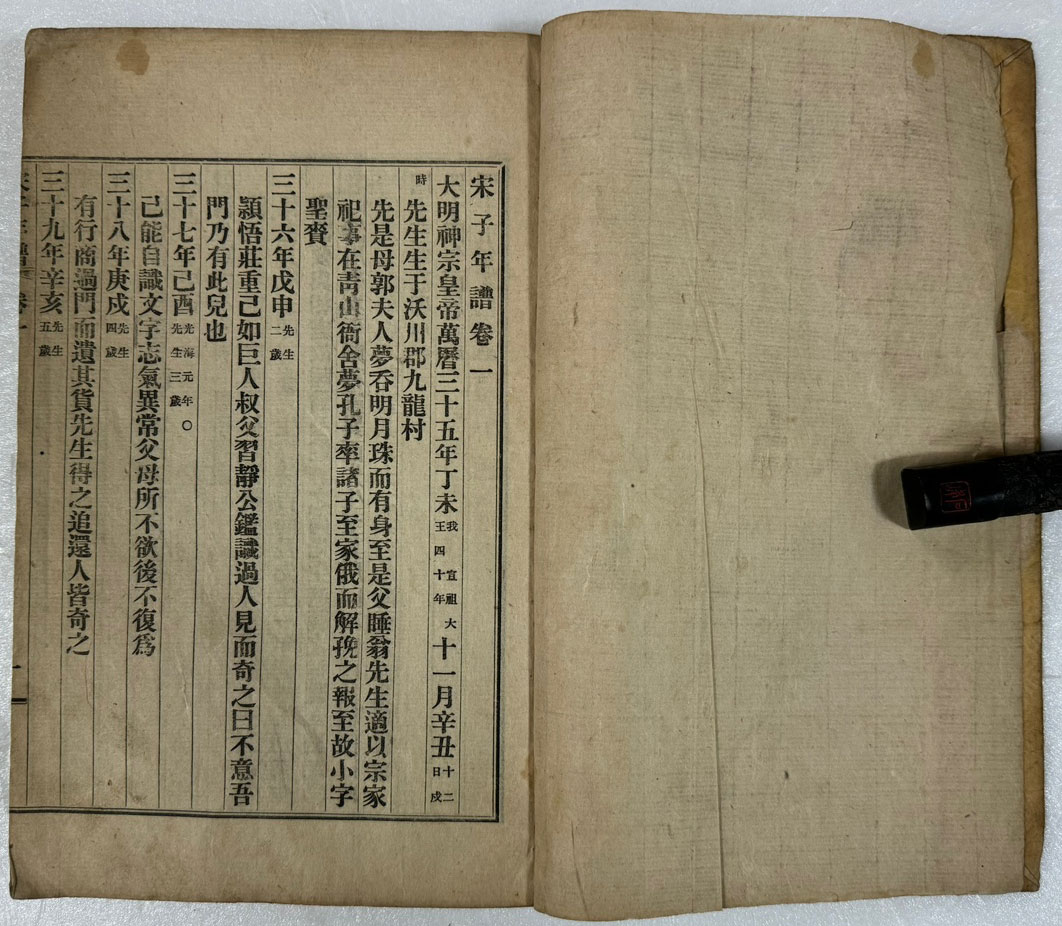 宋子年譜卷一
大明神宗皇帝萬曆三十五年丁未我 宣祖大王四十年十一月辛丑十二日戌
時 先生生于沃川郡九龍村
先是母郭夫人夢呑明月珠而有身至是父睡翁先生適以宗家
祀事在靑山衙舍夢孔子率諸子至家俄而解㝃之報至故小字
聖賚
三十六年戊申先生二歲
穎悟莊重已如巨人叔父習靜公鑑識過人見而奇之曰不意吾
門乃有此兒也
三十七年己酉光海元年○先生三歲
已能自識文字志氣異常父母所不欲後不復爲
三十八年庚戍先生四歲
有行商過門而遺其貨先生得之追還人皆奇之
三十九年辛亥先生五歲